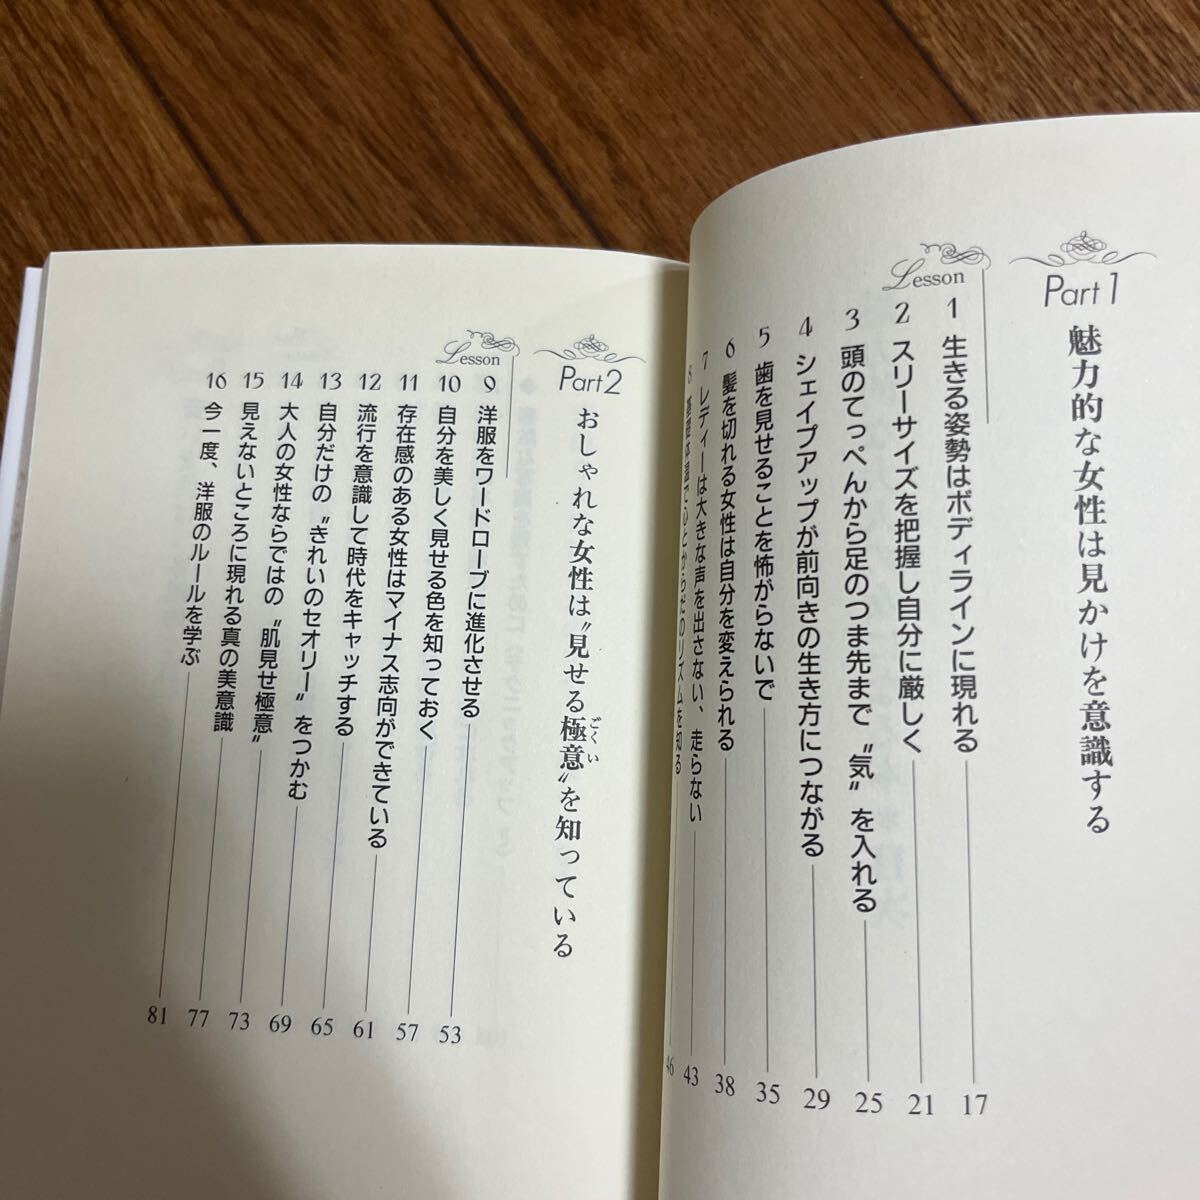 Part1 魅力的な女性は見かけを意識する
Lesson
1 生きる姿勢はボディラインに現れる 17
2 スリーサイズを把握し自分に厳しく 21
3 頭のてっぺんから足のつま先まで〝気〟を入れる 25
4 シェイプアップが前向きの生き方につながる 29
5 歯を見せることを怖がらないで 35
6 髪を切れる女性は自分を変えられる 38
7 レディーは大きな声を出さない、走らない 43
8 基礎体温で心とからだのリズムを知る 46
Part2 おしゃれな女性は〝見せる極意〟を知っている
ごくい
Lesson
9 洋服をワードローブに進化させる 53
10 自分を美しく見せる色を知っておく 57
11 存在感のある女性はマイナス志向ができている 61
12 流行を意識して時代をキャッチする 65
13 自分だけの〝きれいのセオリー〟をつかむ 69
14 大人の女性ならではの〝肌見せ極意〟 73
15 見えないところに現れる真の美意識 77
16 今一度、洋服のルールを学ぶ 81